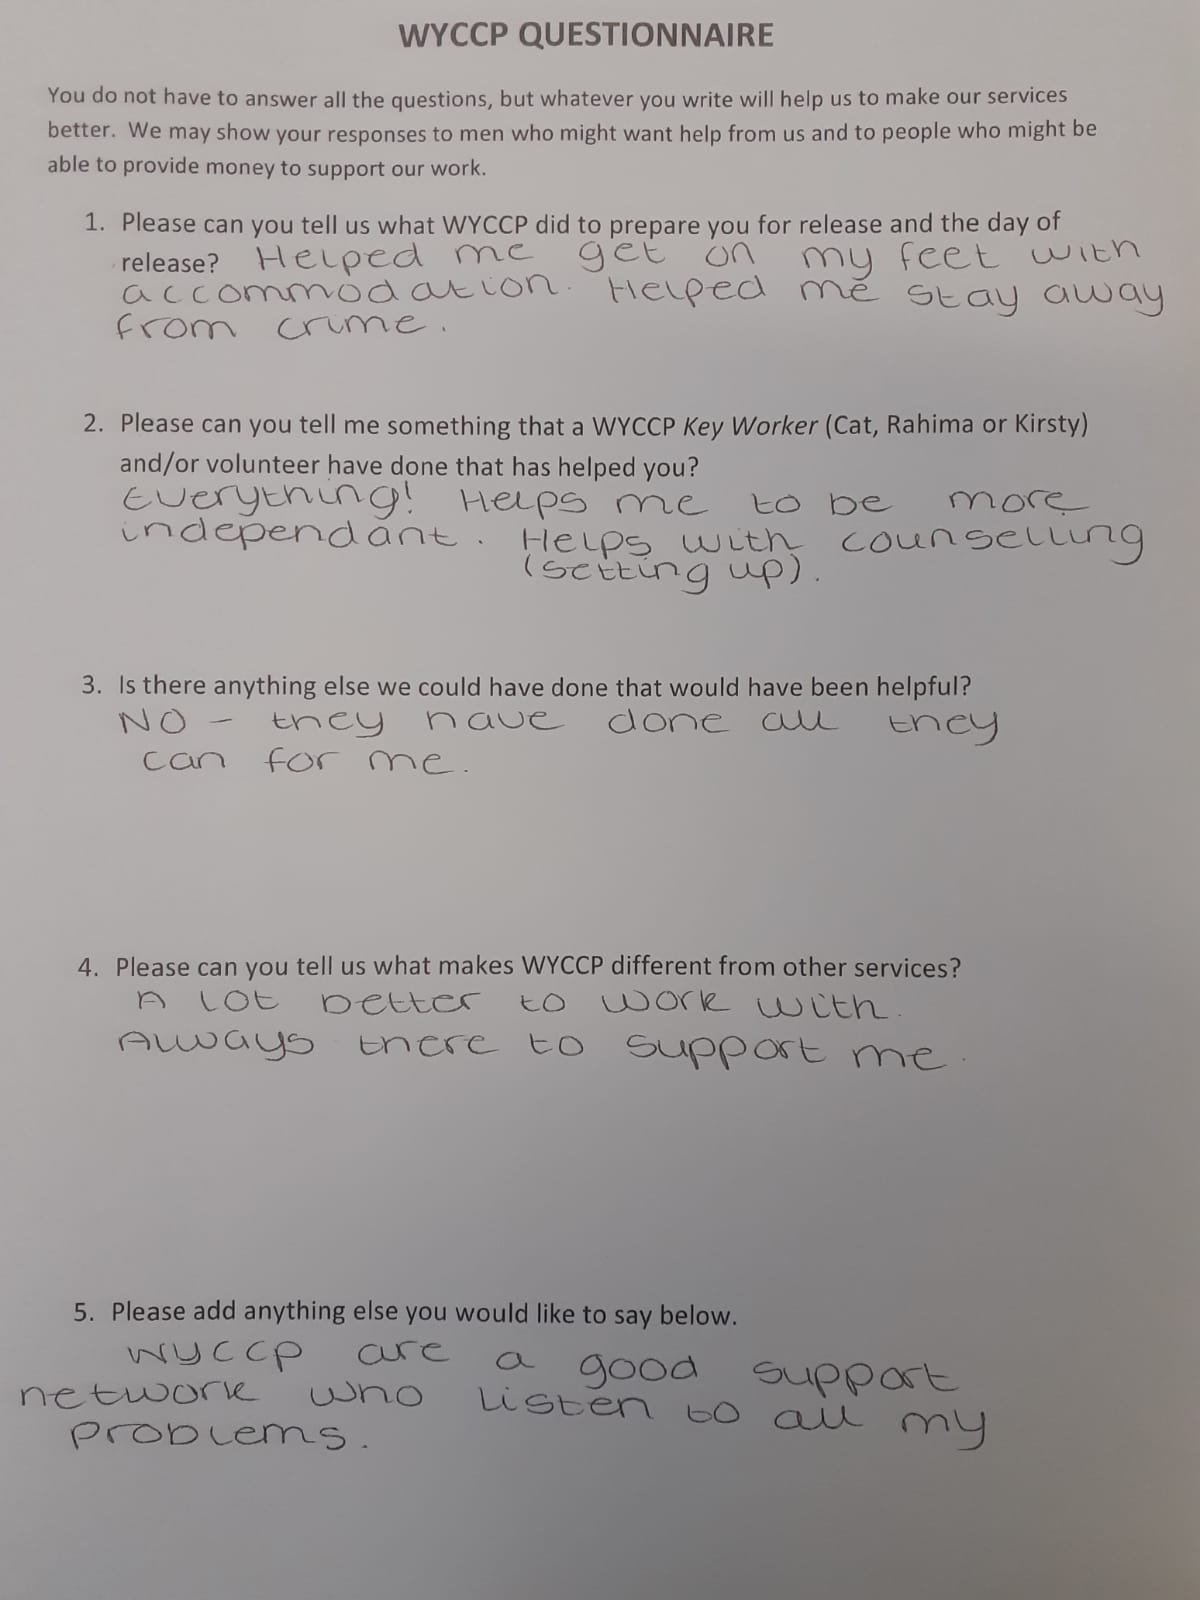 WYCCP QUESTIONNAIRE
You do not have to answer all the questions, but whatever you write will help us to make our services
better. We may show your responses to men who might want help from us and to people who might be
able to provide money to support our work.
1. Please can you tell us what WYCCP did to prepare you for release and the day of
release? Helped me get on my feet with
accommodation. Helped me stay away
from crime.
2. Please can you tell me something that a WYCCP Key Worker (Cat, Rahima or Kirsty)
and/or volunteer have done that has helped you?
Everything! Helps me to be more
independant. Helps with counselling
(setting up).
3. Is there anything else we could have done that would have been helpful?
NO - they have done all they
can for me.
4. Please can you tell us what makes WYCCP different from other services?
A lot better to work with.
Always there to support me.
5. Please add anything else you would like to say below.
WYCCP are a good support
network who listen to all my
problems.